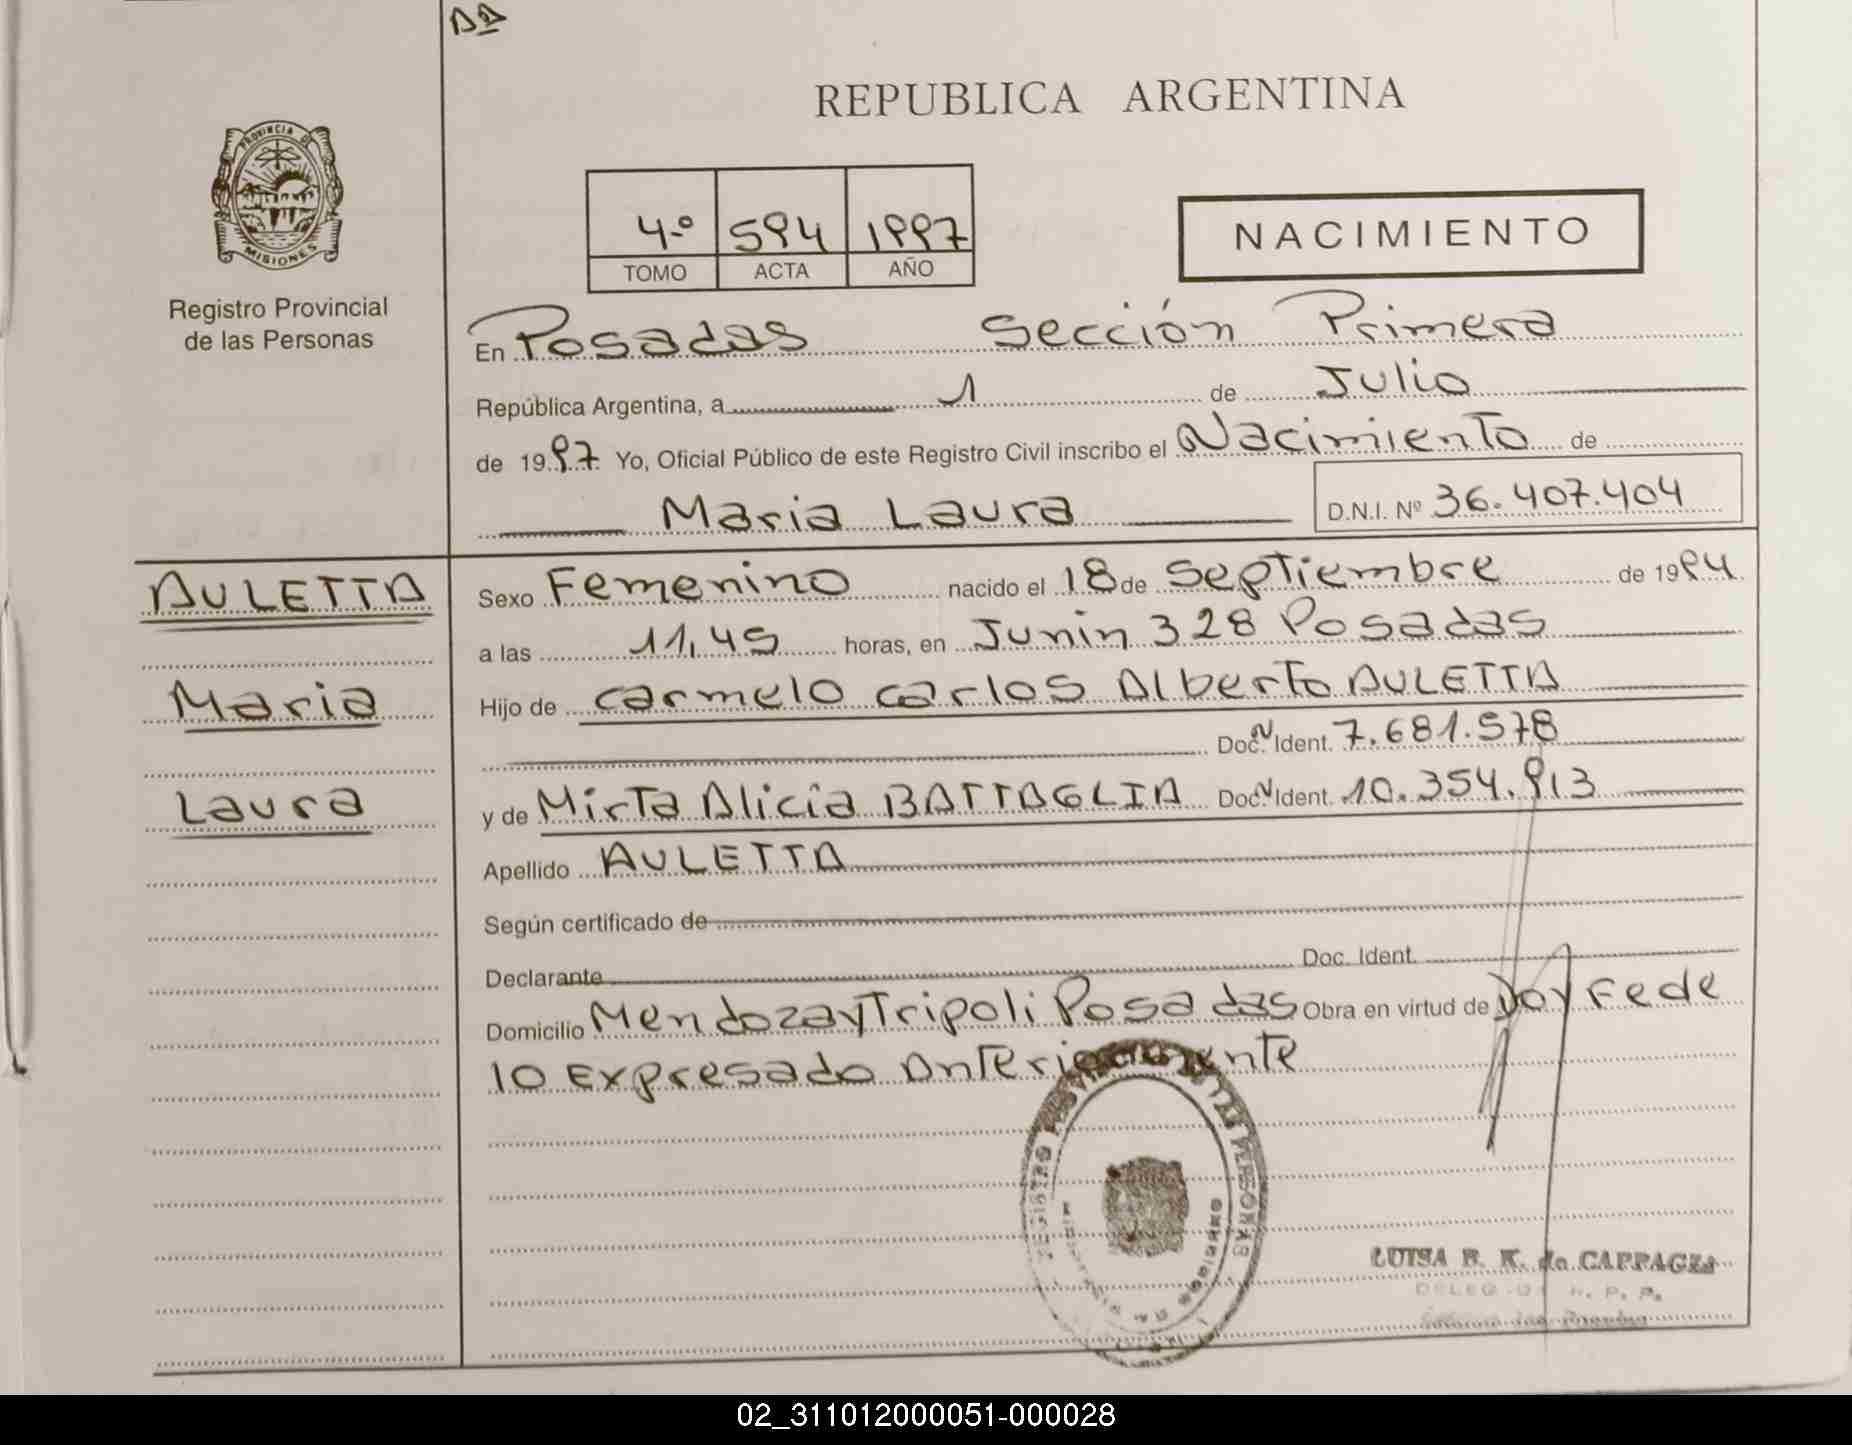 REPUBLICA ARGENTINA
PROVINCIA DE
MISIONES
Registro Provincial
de las Personas
4º 594 1997
TOMO ACTA AÑO
NACIMIENTO
En Posadas Sección Primera
República Argentina, a 1 de Julio
de 1997 Yo, Oficial Público de este Registro Civil inscribo el Nacimiento de
Maria Laura D.N.I. Nº 36.407.404
AULETTA
Maria
Laura
Sexo Femenino nacido el 18 de Septiembre de 1994
a las 11,45 horas, en Junin 328 Posadas
Hijo de Carmelo Carlos Alberto AULETTA
Doc. Ident. 7.681.578
y de Mirta Alicia BATTAGLIA Doc. Ident. 10.354.913
Apellido AULETTA
Según certificado de
Declarante Doc. Ident.
Domicilio Mendoza y Tripoli Posadas Obra en virtud de Doy Fe de
lo Expresado Anteriormente
LUISA B. K. de
02_311012000051-000028